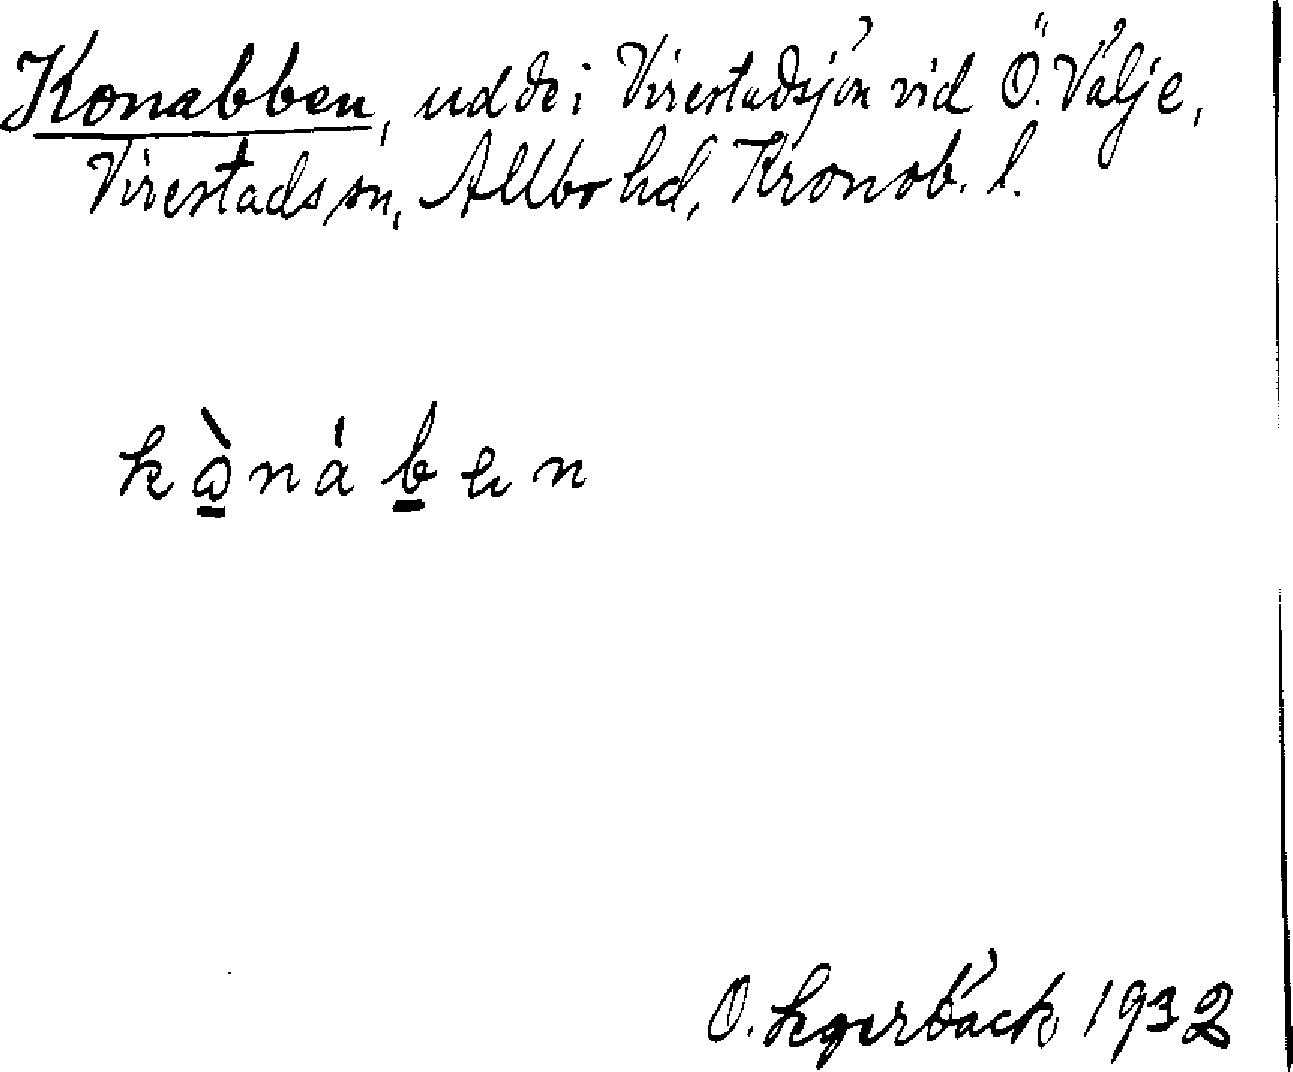 Konabben, udde i Virestadsjön vid Ö. Välje,
Virestads sn, Allbo hd, Kronob. l.
kὼnáben
O. Legerbäck 1932